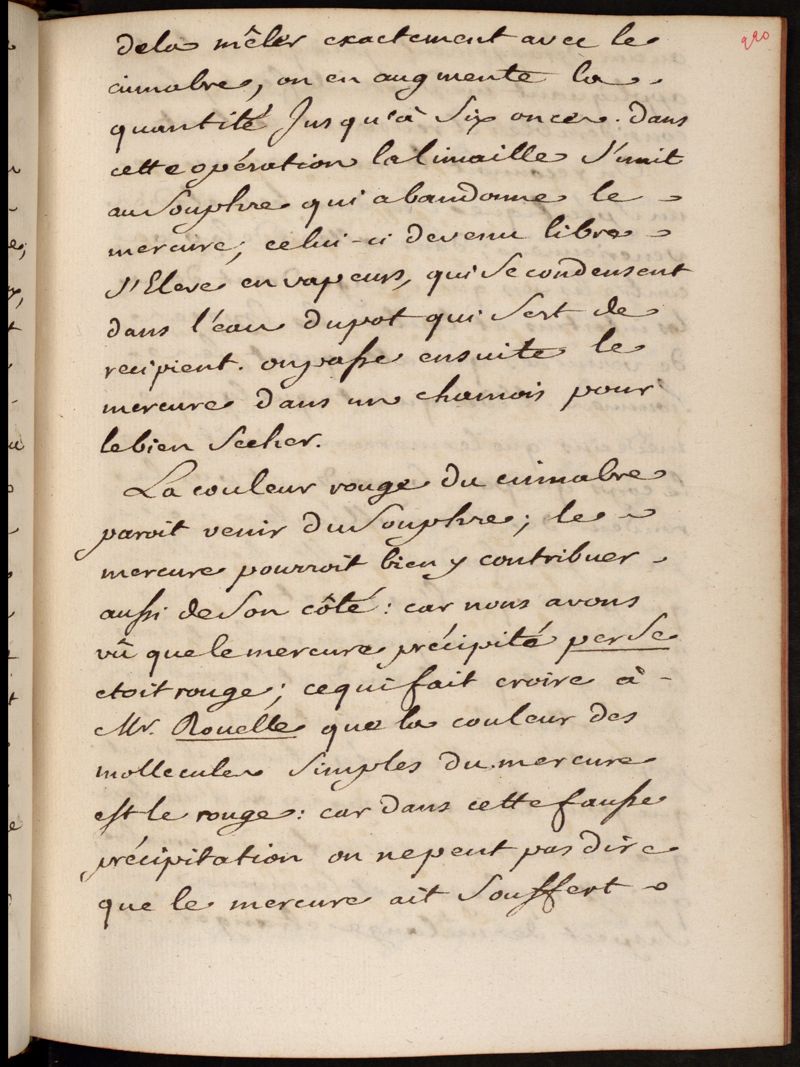 220
dela mêler exactement avec le
cinnabre, on en augmente la
quantité Jusqu'à Six onces. dans
cette opération la limaille S'unit
au Souphre qui abandonne le
mercure; celui-ci devenu libre
S'Eleve en vapeurs, qui Se condensent
dans l'eau du pot qui Sert de
recipient. on passe ensuite le
mercure dans un chamois pour
le bien Secher.
La couleur rouge du cinnabre
paroit venir du Souphre; le
mercure pourroit bien y contribuer
aussi de Son côté: car nous avons
vû que le mercure précipité per Se
etoit rouge; ce qui fait croire à
Mr. Rouelle que la couleur des
mollecules Simples du mercure
est le rouge: car dans cette fausse
précipitation on ne peut pas dire
que le mercure ait Souffert